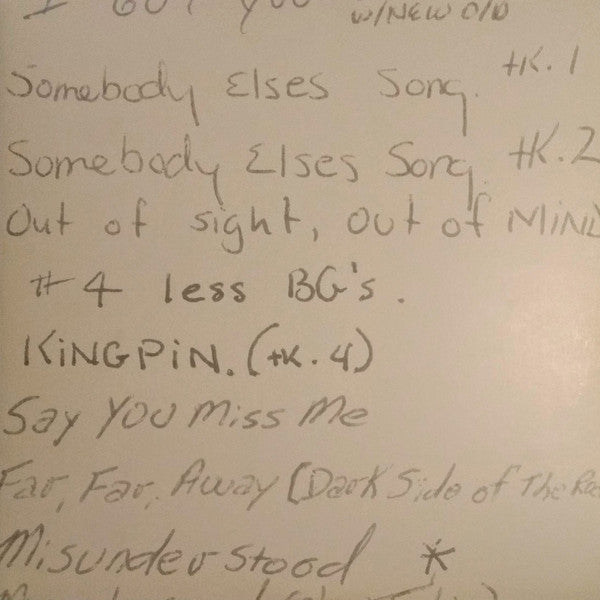 I GOT YOU W/NEW O/D
Somebody Elses Song. tK. 1
Somebody Elses Song tK. 2
Out of sight, Out of MIND
#4 less BG's.
KINGPIN. (tK. 4)
Say You Miss Me
Far, Far, Away (Dark Side of The
Misunderstood *